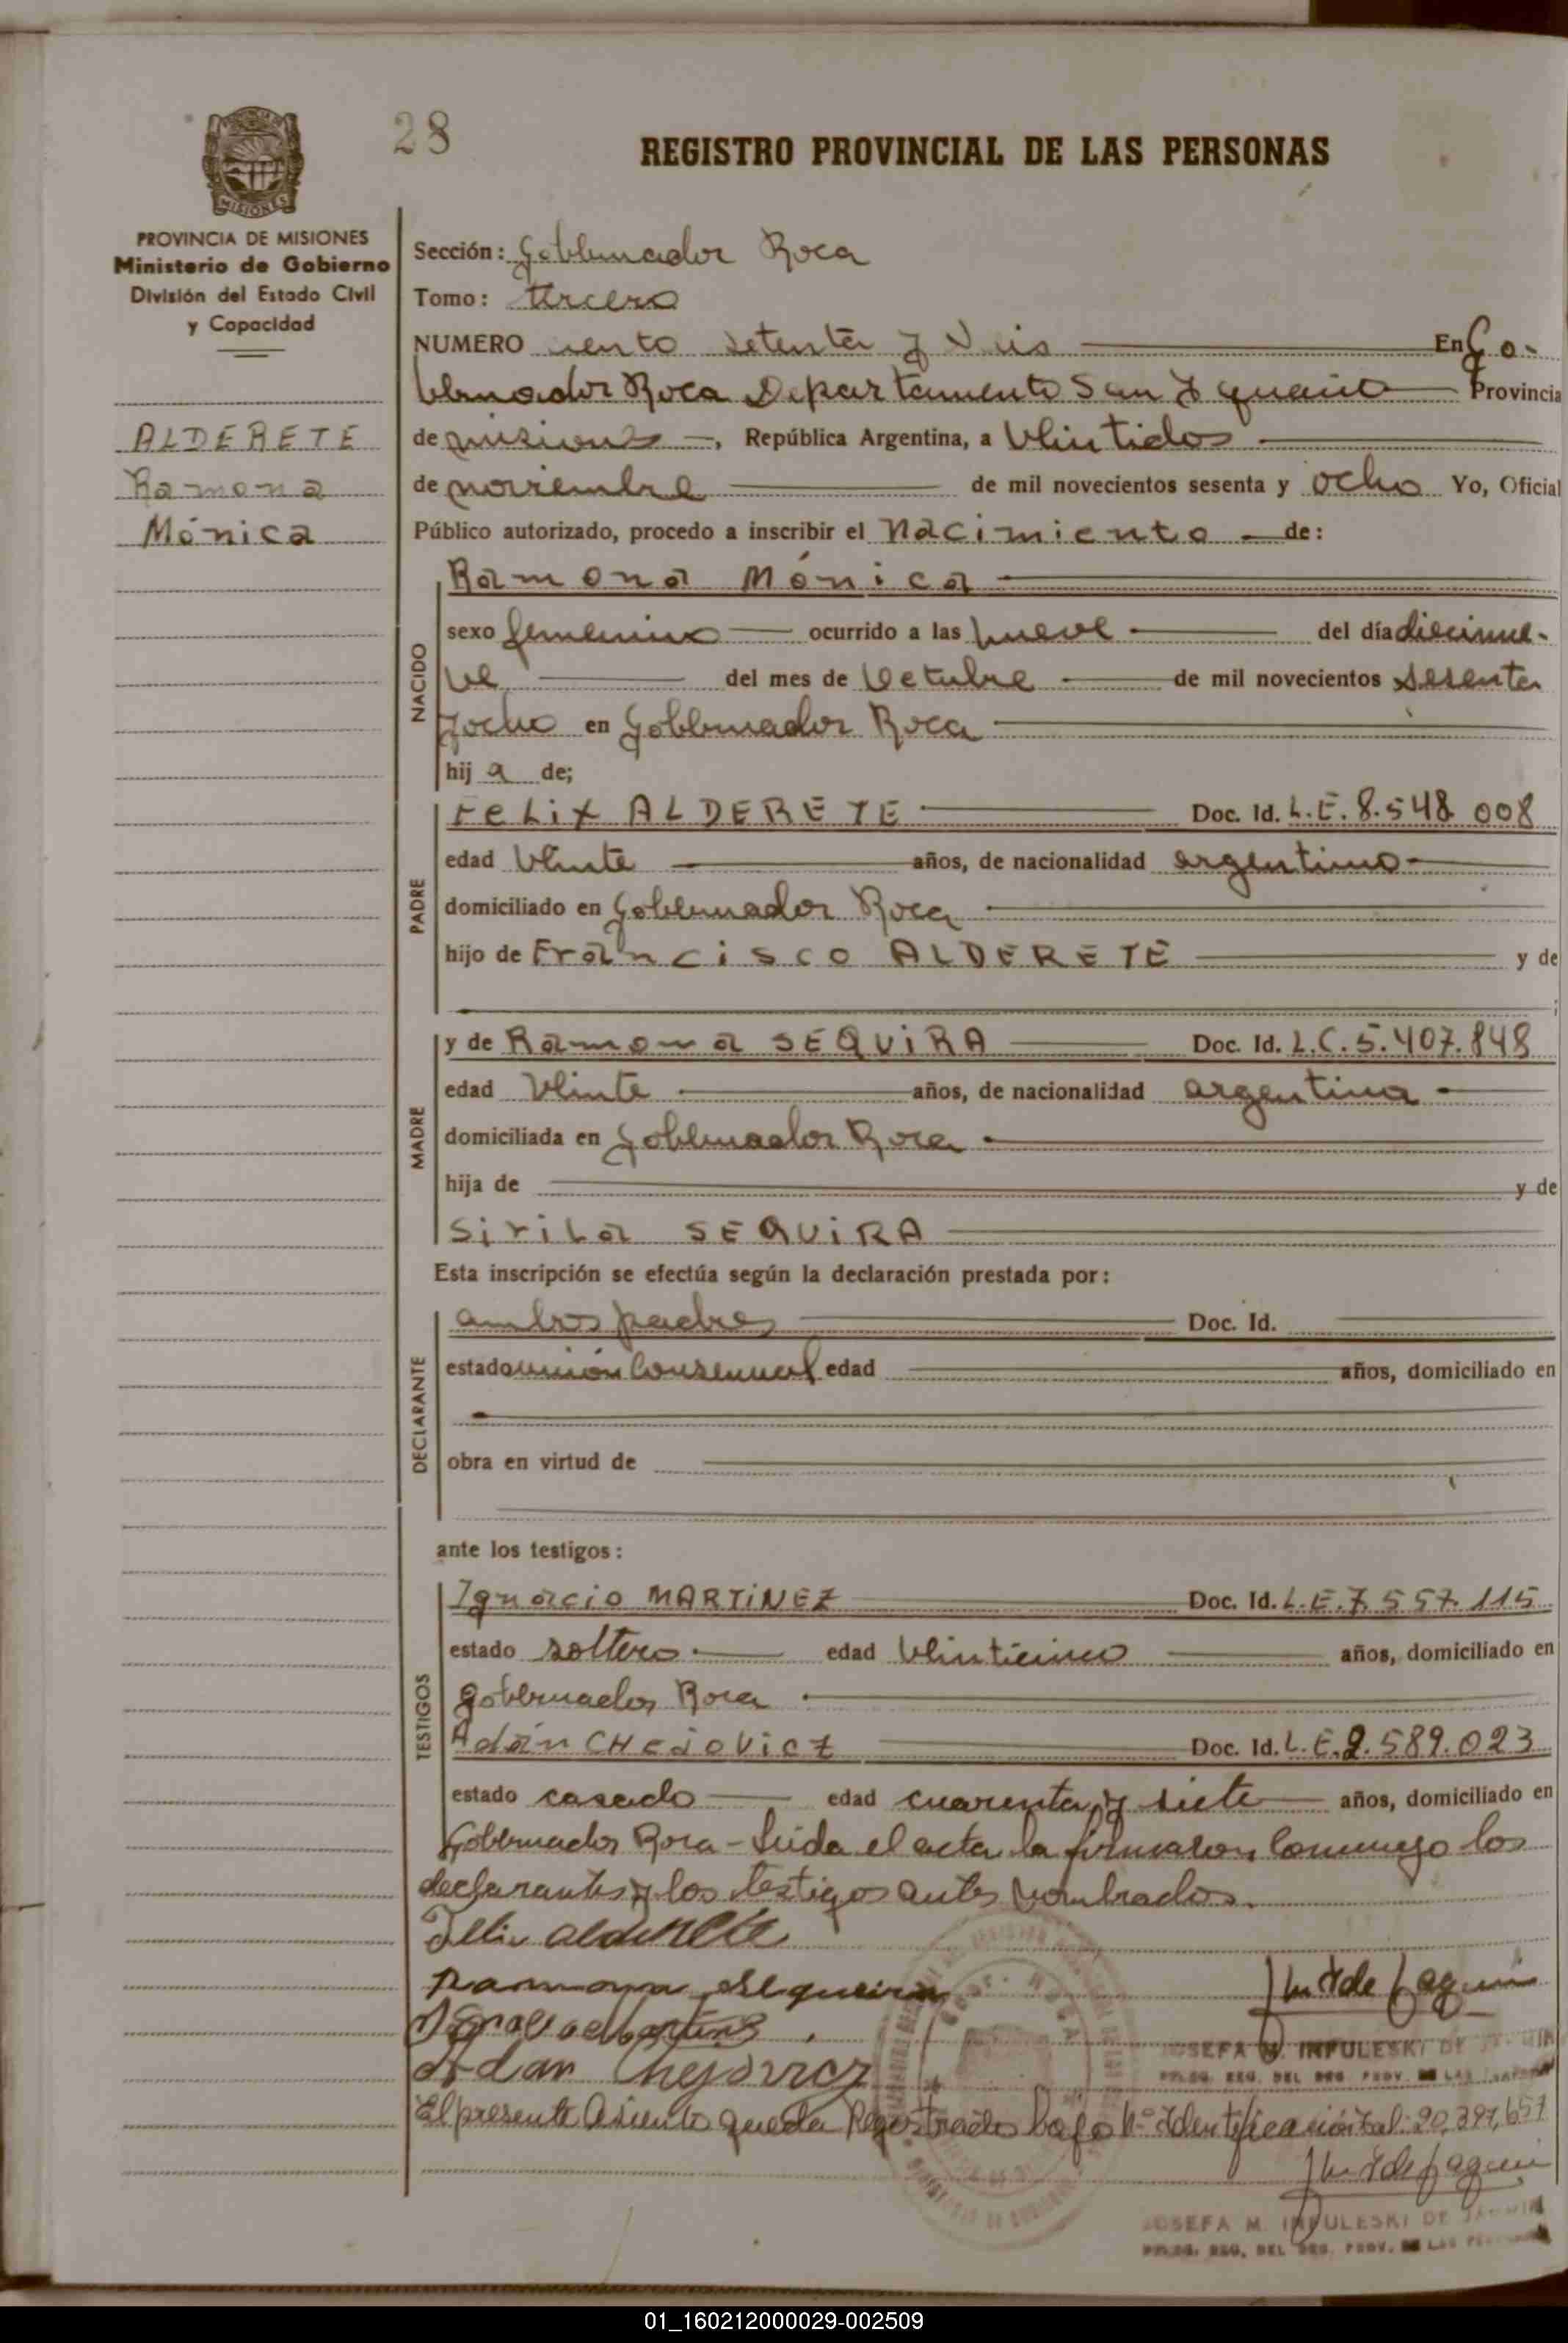 28
REGISTRO PROVINCIAL DE LAS PERSONAS
MISIONES
PROVINCIA DE MISIONES
Ministerio de Gobierno
División del Estado Civil
y Capacidad
ALDERETE
Ramona
Mónica
Sección: Gobernador Roca
Tomo: tercero
NUMERO ciento setenta y seis En Go-
bernador Roca Departamento San Ignacio Provincia
de misiones, República Argentina, a veintidos
de noviembre de mil novecientos sesenta y ocho Yo, Oficial
Público autorizado, procedo a inscribir el nacimiento de:
NACIDO
Ramona Mónica
sexo femenino ocurrido a las nueve del día diecinue-
ve del mes de Octubre de mil novecientos sesenta
y ocho en Gobernador Roca
hij a de;
PADRE
Felix ALDERETE Doc. Id. L.E. 8.548.008
edad veinte años, de nacionalidad argentino
domiciliado en Gobernador Roca
hijo de Francisco ALDERETE y de
MADRE
y de Ramona SEQUIRA Doc. Id. L.C. 5.407.848
edad veinte años, de nacionalidad argentina
domiciliada en Gobernador Roca
hija de y de
Sirila SEQUIRA
Esta inscripción se efectúa según la declaración prestada por:
DECLARANTE
ambos padres Doc. Id.
estado unión consensual edad años, domiciliado en
obra en virtud de
ante los testigos:
TESTIGOS
Ignacio MARTINEZ Doc. Id. L.E. 7.557.115
estado soltero edad veinticinco años, domiciliado en
Gobernador Roca
Adán CHEJOVICZ Doc. Id. L.E. 2.589.023
estado casado edad cuarenta y siete años, domiciliado en
Gobernador Roca - Leida el acta la firmaron conmigo los
declarantes y los testigos antes nombrados.
Felix alderete
Ramona sequeira
Ignacio Martinez
Adan Chejovicz
JOSEFA M. INFULESKI DE
El presente asiento queda Registrado bajo N° Identificación tal: 20,397,657
JOSEFA M. INFULESKI DE
01_160212000029-002509